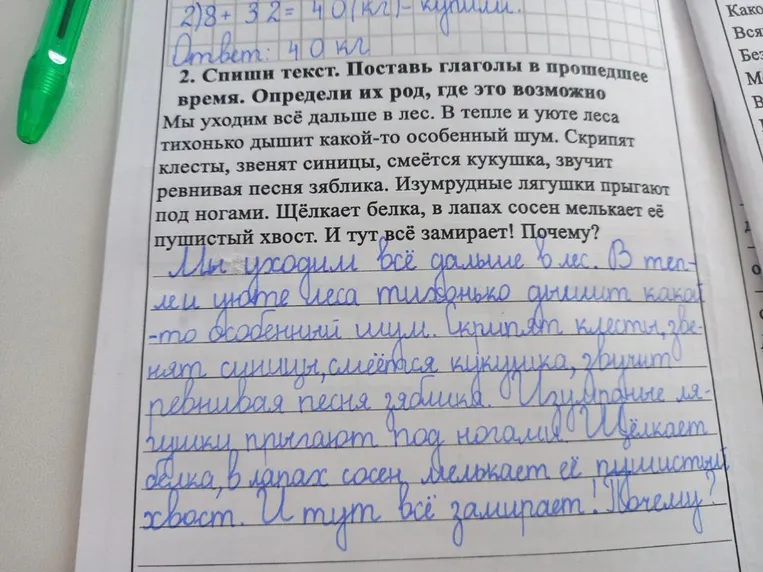 2) 8 + 32 = 40 (кг) - купили.
Ответ: 40 кг
2. Спиши текст. Поставь глаголы в прошедшее
время. Определи их род, где это возможно
Мы уходим всё дальше в лес. В тепле и уюте леса
тихонько дышит какой-то особенный шум. Скрипят
клесты, звенят синицы, смеётся кукушка, звучит
ревнивая песня зяблика. Изумрудные лягушки прыгают
под ногами. Щёлкает белка, в лапах сосен мелькает её
пушистый хвост. И тут всё замирает! Почему?
Мы уходим всё дальше в лес. В теп-
ле и уюте леса тихонько дышит какой
-то особенный шум. Скрипят клесты, зве-
нят синицы, смеётся кукушка, звучит
ревнивая песня зяблика. Изумрудные ля-
гушки прыгают под ногами. Щёлкает
белка, в лапах сосен мелькает её пушистый
хвост. И тут всё замирает! Почему?
Како
Вся
Без
М
В